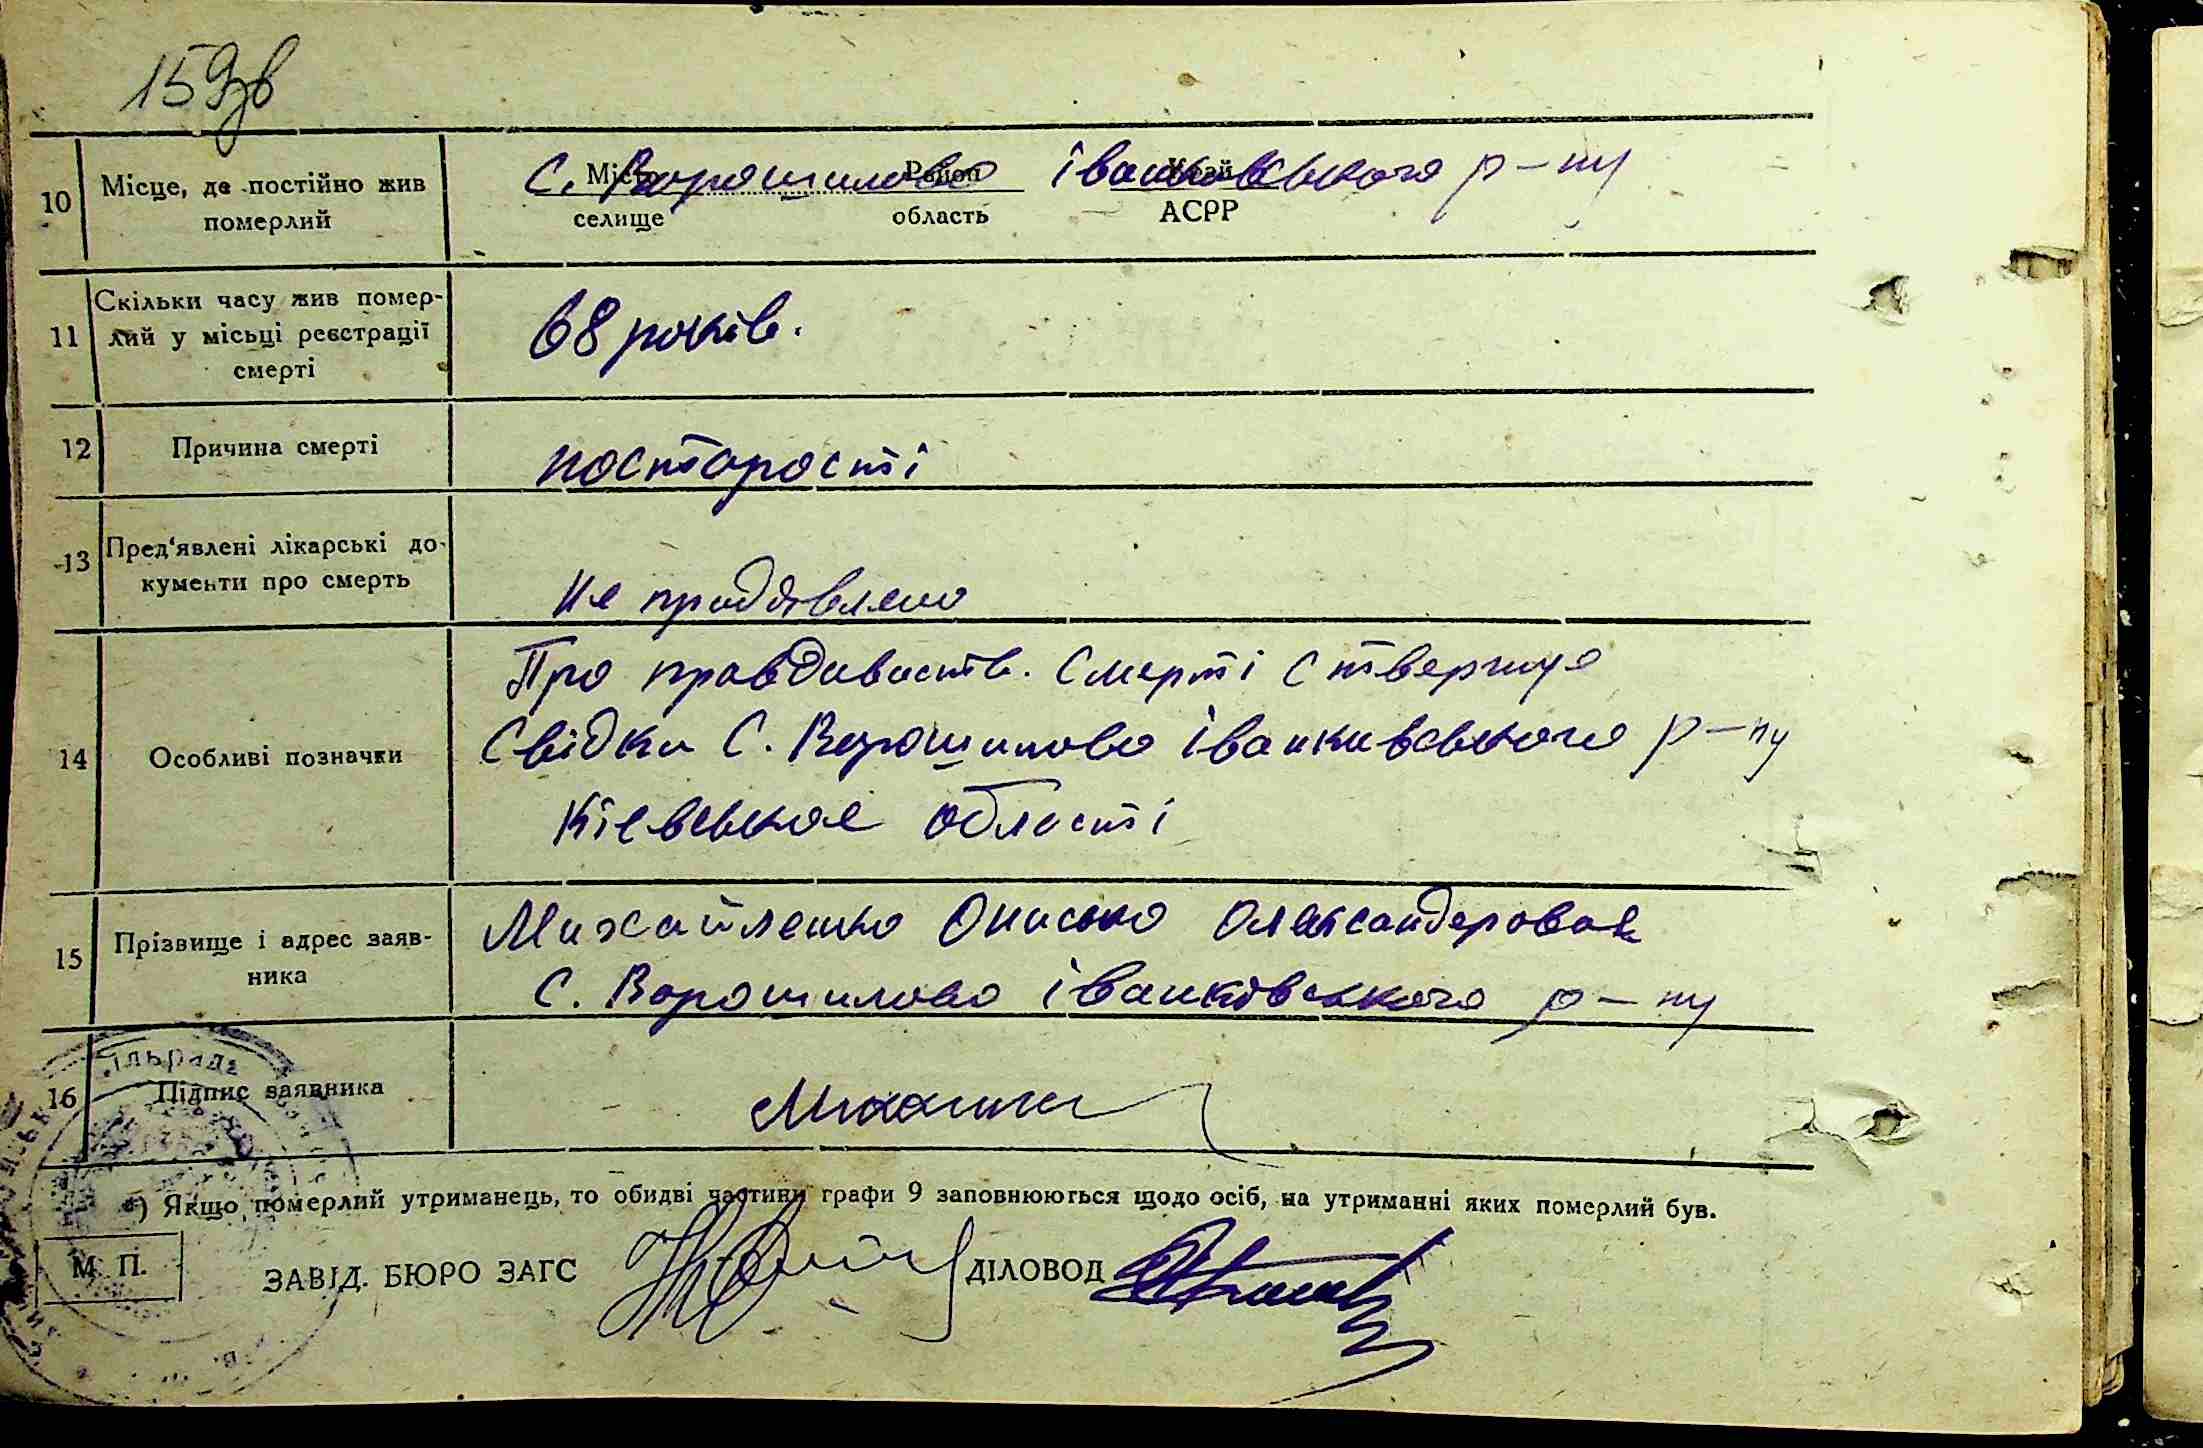 159зв
10 Місце, де постійно жив
померлий
Місто Район Край
с. Ворошилово іванковського р-ну
селище область АСРР
11 Скільки часу жив помер-
лий у місьці реєстрації
смерті
68 років.
12 Причина смерті
постарості
13 Пред'явлені лікарські до-
кументи про смерть
Не предявлено
14 Особливі позначки
Про правдивость. смерті
Свідки с. Ворошилово іванкивського р-ну
Кіевськое області
15 Прізвище і адрес заяв-
ника
Михайленко Онисько
с. Ворошилово іванковського р-ну
16 Підпис заявника
*) Якщо померлий утриманець, то обидві частини графи 9 заповнюються щодо осіб, на утриманні яких померлий був.
М. П.
ЗАВІД. БЮРО ЗАГС ДІЛОВОД